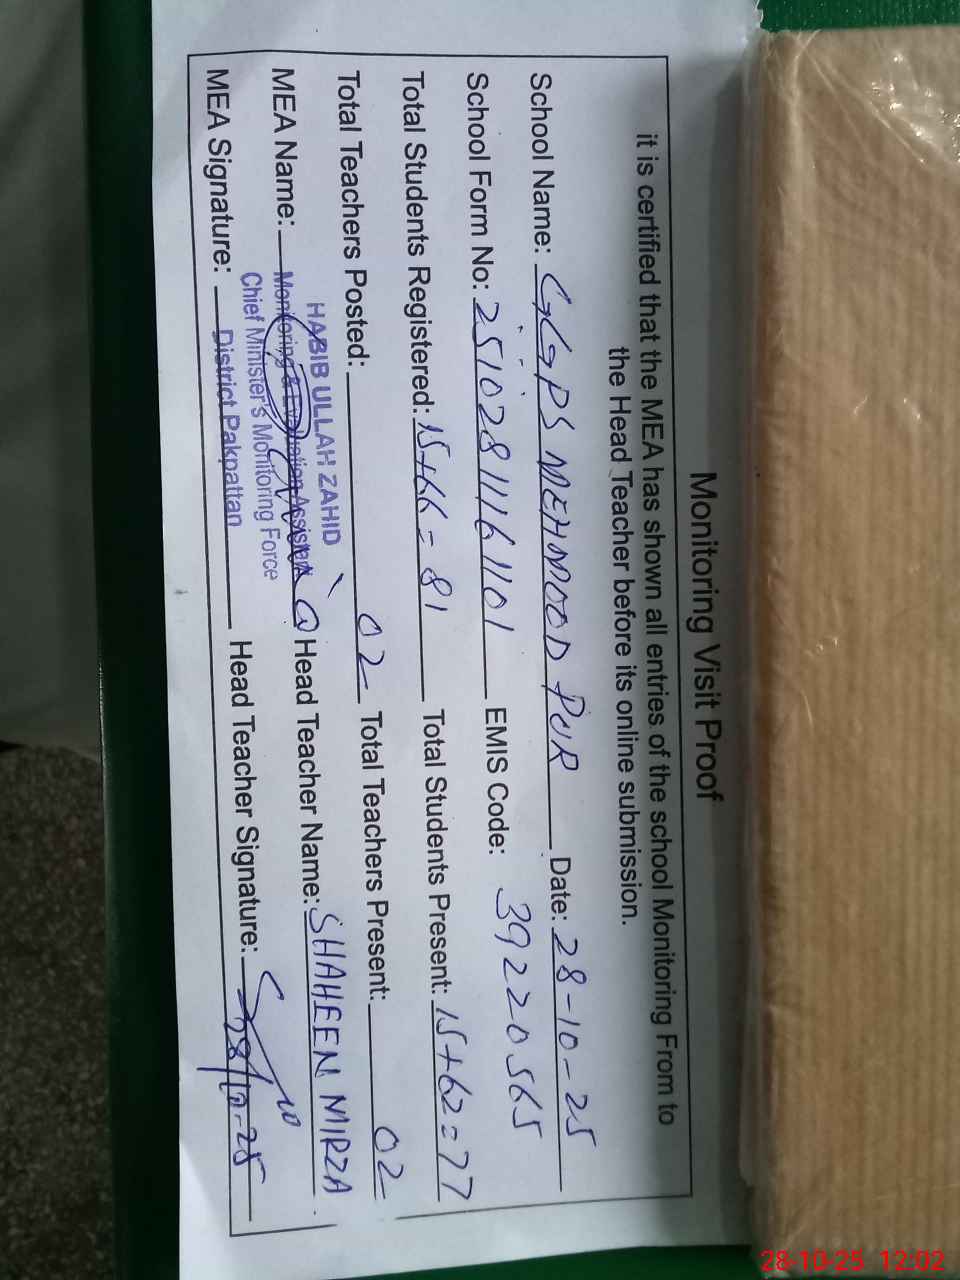 Monitoring Visit Proof
it is certified that the MEA has shown all entries of the school Monitoring From to
the Head Teacher before its online submission.
School Name: GGPS MEHMOOD PUR Date: 28-10-25
School Form No: 25102811161101 EMIS Code: 39220565
Total Students Registered: 15+66=81 Total Students Present: 15+62=77
Total Teachers Posted: 02 Total Teachers Present: 02
HABIB ULLAH ZAHID
MEA Name: Monitoring & Evaluation Assistant Head Teacher Name: SHAHEEN MIRZA
Chief Minister's Monitoring Force
MEA Signature: District Pakpattan Head Teacher Signature: 28/10-25
28-10-25 12:02